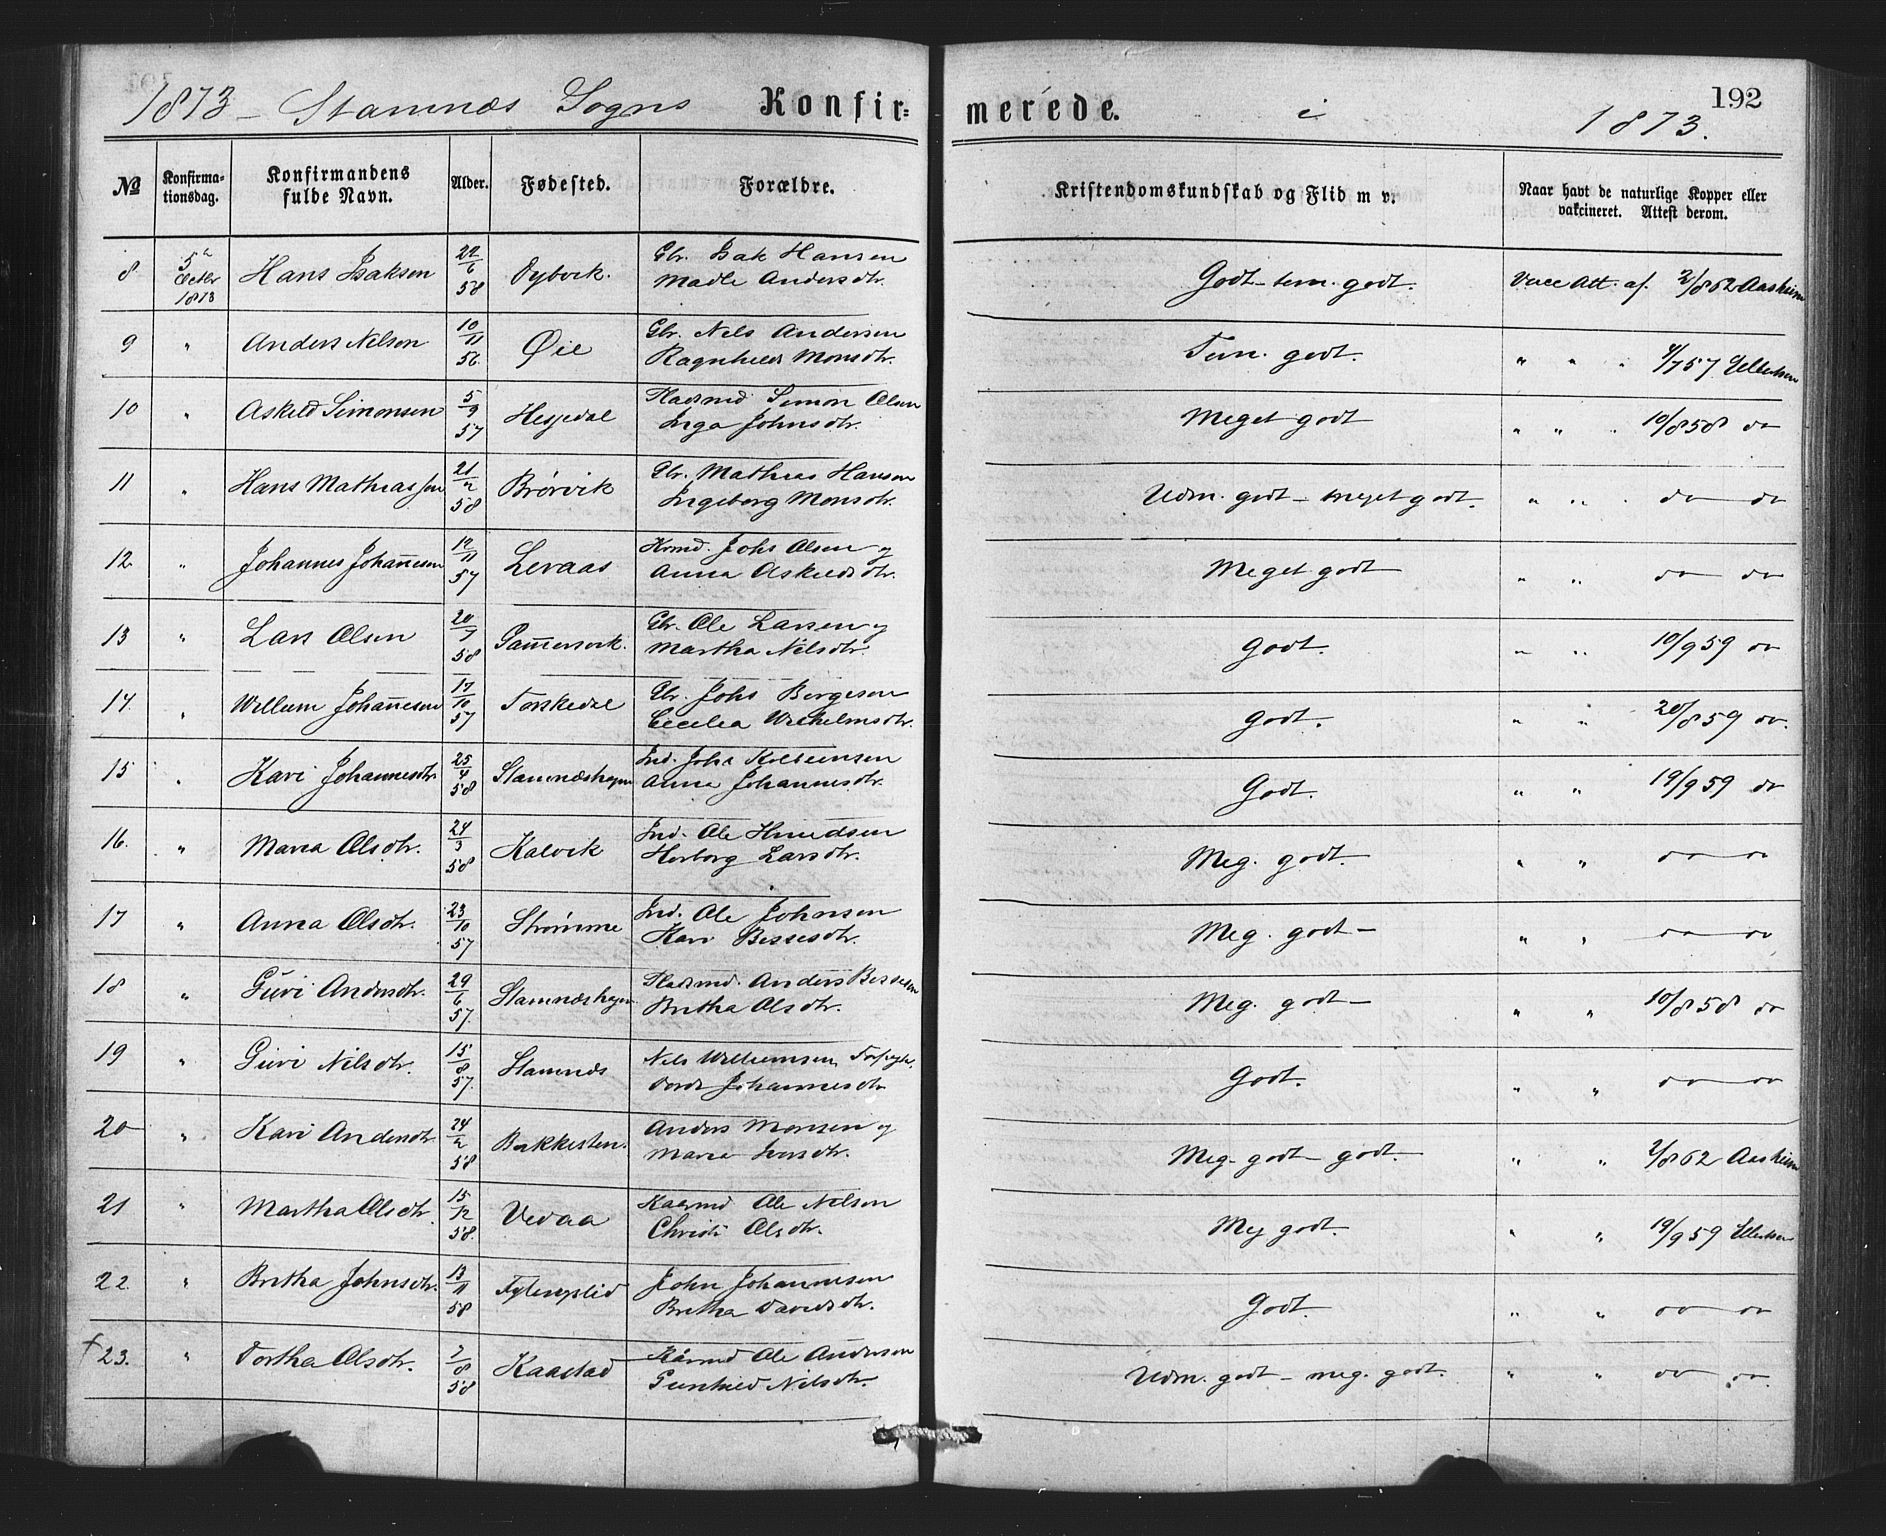 1873 - Stamnæs Sogns Konfir= merede. i 1873.
192
№ Konfirma-tionsdag. Konfirmandens fulde Navn. Alder. Fødested. Forældre. Kristendomskundskab og Flid m v. Naar havt de naturlige Kopper eller vakcineret. Attest derom.
8 5te Octbr 1873 Hans Isaksen 22/6 58 Dybvik. Gbr. Isak Hansen Madle Andersdtr. Godt - tem. godt. Vacc Att. af. 2/8 62 Aasheim
9 " Anders Nelson 10/11 56. Øie Gbr. Nels Andersen Ragnhild Monsdtr. Tem. godt. " " " 4/7 57 Ellertsen
10 " Askild Simonsen 5/9 57 Hesjedal Pladsmd Simon Olsen Inga Johnsdtr. Meget godt " " " 10/8 58 do
11 " Hans Mathiassen 21/2 58 Brørvik Gbr. Mathias Hansen Ingeborg Monsdtr. Udm. godt - meget godt. " " " do do
12 " Johannes Johannesen 12/11 57 Levaas Kaarmd. Johs Olsen og Anna Askildsdtr. Meget godt " " do do
13 " Lars Olsen 20/7 58 Gammersvik. Gbr. Ole Larsen og Martha Nilsdtr. Godt. " " 10/9 59 do
14. " Willum Johannesen 17/10 57 Torskedal Gbr. Johs Børgesen Cecilia Wilhelmsdtr. Godt. " " 20/8 59 do.
15 " Kari Johannesdtr. 25/4 58 Stamnæshagen Ind. Johs Anna Johannesdtr. Godt. " " 19/9 59 do
16. " Maria Olsdtr. 24/3 58 Kalvik Ind. Ole Knudsen Herborg Larsdtr. Meg. godt. " " do do
17 " Anna Olsdtr. 23/10 57 Strømme Ind. Ole Johnsen Kari Bessesdtr. Meg. godt - " " do do
18 " Guri Andersdtr. 29/6 57. Stamnæshagen Pladsmd. Anders Bessesen Britha Olsdtr. Meg. godt - " " 10/8 58 do
19 " Guri Nilsdtr. 15/8 57. Stamnæs Nils Willumsen, Dorde Johannesdtr Godt. " " do do
20 " Kari Andersdtr. 24/2 58 Bakkesten. Anders Monsen og Maria Iversdtr. Meg. godt - godt. " " 2/8 62 Aasheim
21 " Martha Olsdtr. 15/12 58. Vedaa Kaarmd Ole Nilson Christi Olsdtr. Meg godt. " " 19/9 59 Ellertsen
22. " Britha Johnsdtr. 13/11 58 Fylingslid John Johannesen Britha Davidsdtr. Godt. " " do do
+ 23. " Dortha Olsdtr. 2/8 58 Kaastad Kårmd Ole Andersen Gunhild Nilsdtr. Udm. godt - meg. godt. " " do do.